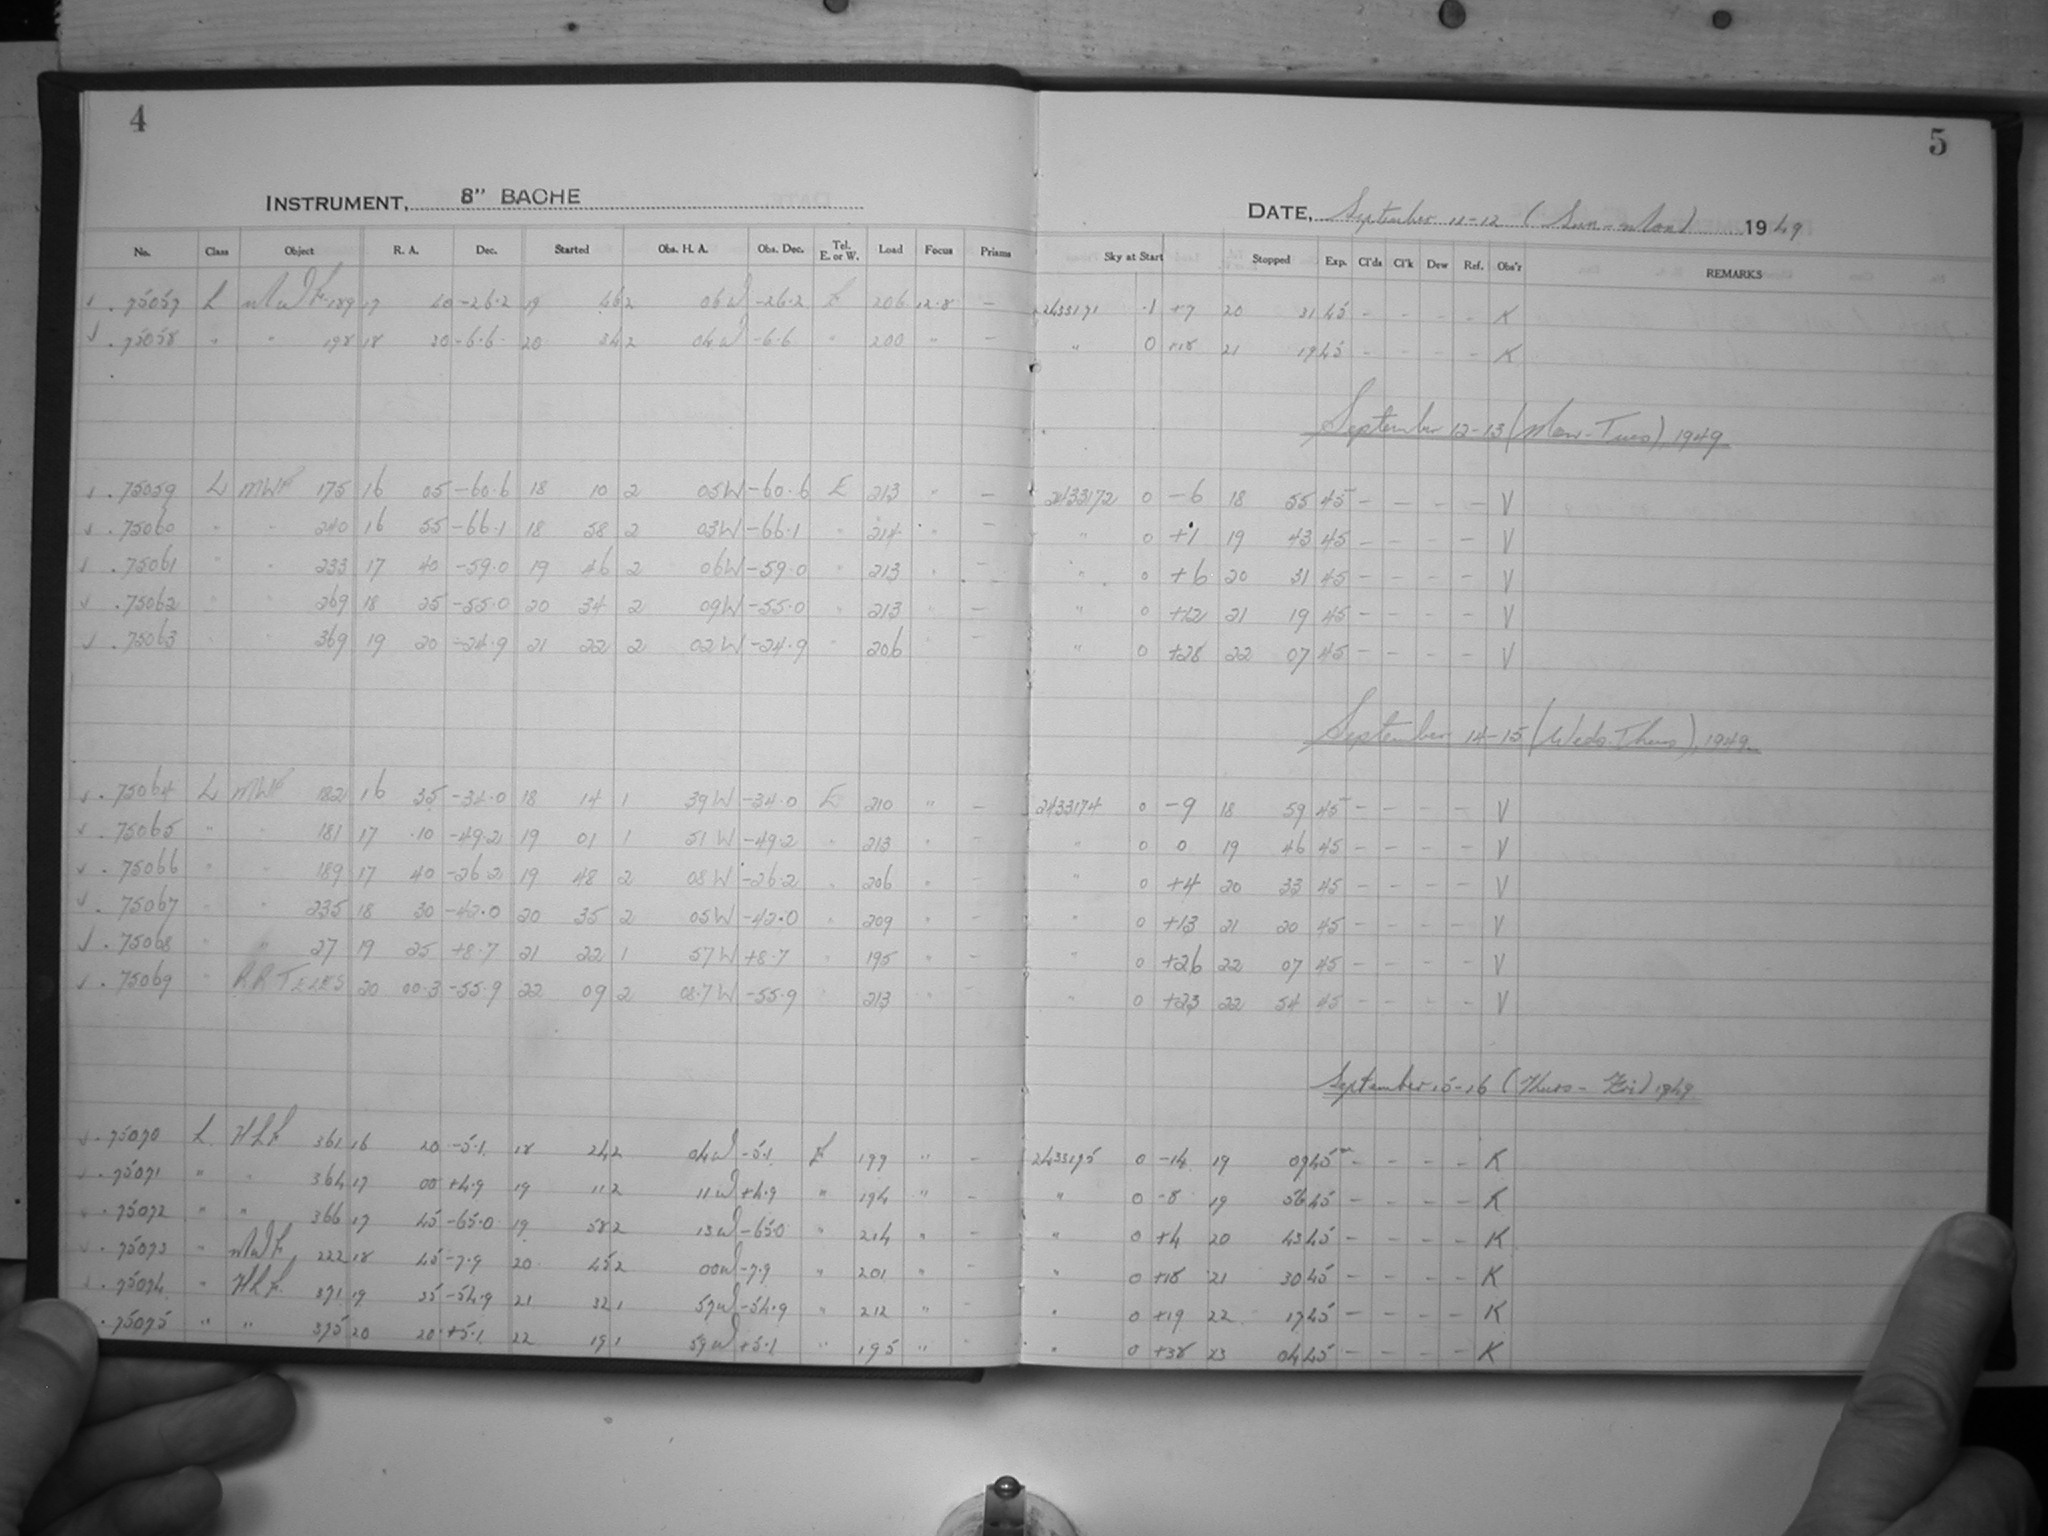 4
5
INSTRUMENT, 8" BACHE
DATE, September 11-12 (Sun-Mon) 1949
No. Class Object R. A. Dec. Started Obs. H. A. Obs. Dec. Tel. E. or W. Load Focus Prisms Sky at Start Stopped Exp. Cl'ds Cl'k Dew Ref. Obs'r REMARKS
√ . 75057 L MWF 189 17 40 -26.2 19 46 2 06W -26.2 E 206 12.8 — 2433171 .1 +7 20 31 45 - - - - K
√ . 75058 " " 198 18 30 -6.6 20 34 2 04W -6.6 " 200 " — " 0 +18 21 19 45 - - - - K
September 12-13 (Mon-Tues), 1949
√ . 75059 L MWF 175 16 05 -60.6 18 10 2 05W -60.6 E 213 " — 2433172 0 -6 18 55 45 - - - - V
√ . 75060 " " 240 16 55 -66.1 18 58 2 03W -66.1 " 214 " — " 0 +1 19 43 45 - - - - V
√ . 75061 " " 233 17 40 -59.0 19 46 2 06W -59.0 " 213 " — " 0 +6 20 31 45 - - - - V
√ . 75062 " " 269 18 25 -55.0 20 34 2 09W -55.0 " 213 " — " 0 +12 21 19 45 - - - - V
√ . 75063 " " 369 19 20 -24.9 21 22 2 02W -24.9 " 206 " — " 0 +28 22 07 45 - - - - V
September 14-15 (Weds-Thurs), 1949
√ . 75064 L MWF 182 16 35 -34.0 18 14 1 39W -34.0 E 210 " — 2433174 0 -9 18 59 45 - - - - V
√ . 75065 " " 181 17 10 -49.2 19 01 1 51W -49.2 " 213 " - " 0 0 19 46 45 - - - - V
√ . 75066 " " 189 17 40 -26.2 19 48 2 08W -26.2 " 206 " - " 0 +4 20 33 45 - - - - V
√ . 75067 " " 235 18 30 -42.0 20 35 2 05W -42.0 " 209 " - " 0 +13 21 20 45 - - - - V
√ . 75068 " " 27 19 25 +8.7 21 22 1 57W +8.7 " 195 " - " 0 +26 22 07 45 - - - - V
√ . 75069 " RR TELES 20 00.3 -55.9 22 09 2 08.7W -55.9 " 213 " - " 0 +23 22 54 45 - - - - V
September 15-16 (Thurs-Fri) 1949
√ . 75070 L HLF 361 16 20 -5.1 18 24 2 04W -5.1 E 199 " - 2433175 0 -14 19 09 45 - - - - K
√ . 75071 " " 364 17 00 +4.9 19 11 2 11W +4.9 " 194 " - " 0 -8 19 56 45 - - - - K
√ . 75072 " " 366 17 45 -65.0 19 58 2 13W -65.0 " 214 " - " 0 +4 20 43 45 - - - - K
√ . 75073 " MWF 222 18 45 -7.9 20 45 2 00W -7.9 " 201 " - " 0 +18 21 30 45 - - - - K
√ . 75074 " HLF 371 19 35 -54.9 21 32 1 57W -54.9 " 212 " - " 0 +19 22 17 45 - - - - K
. 75075 " " 375 20 20 +5.1 22 19 1 59W +5.1 " 195 " - " 0 +38 23 04 45 - - - - K